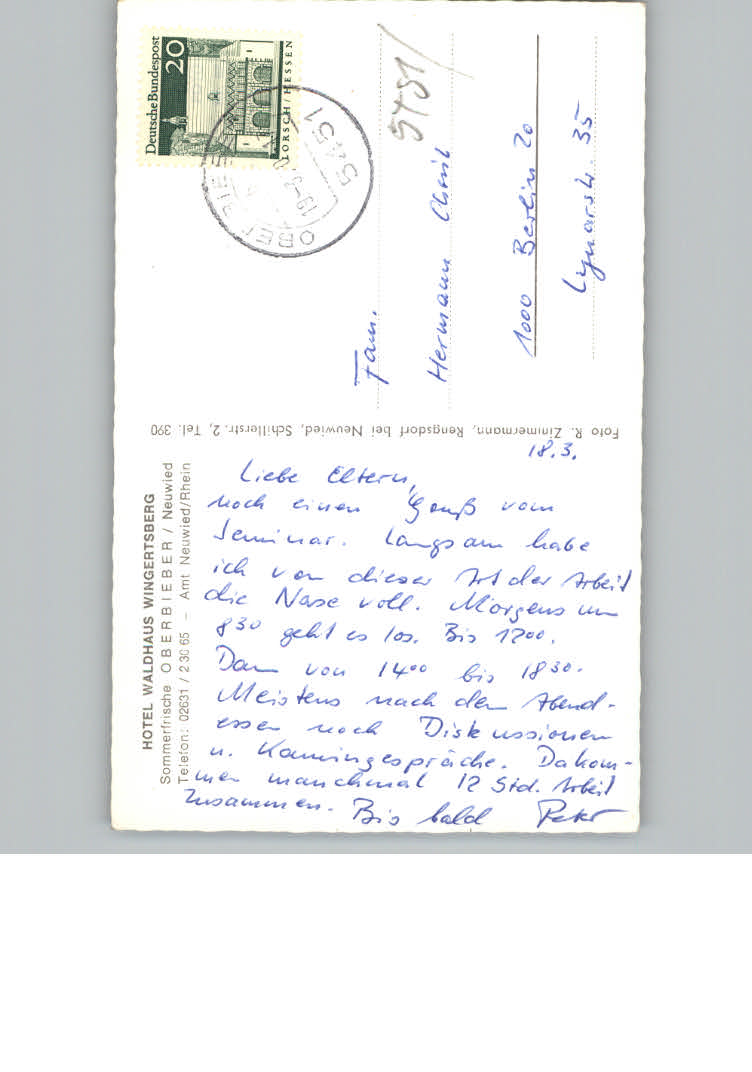 Deutsche Bundespost
20
LORSCH / HESSEN
5451
5451
Fam.
Hermann
1000 Berlin 20
Lynarstr. 35
Foto R. Zimmermann, Rengsdorf bei Neuwied, Schillerstr. 2, Tel. 390
HOTEL WALDHAUS WINGERTSBERG
Sommerfrische OBERBIEBER / Neuwied
Telefon: 02631 / 2 30 65 – Amt Neuwied/Rhein
18.3.
Liebe Eltern,
noch einen Gruß vom
Seminar. Langsam habe
ich von dieser Art der Arbeit
die Nase voll. Morgens um
8 30 geht es los. Bis 12 00.
Dann von 14 00 bis 18 30.
Meistens nach dem Abend-
essen noch Diskussionen
u. Kamingespräche. Da kom-
men manchmal 12 Std. Arbeit
zusammen. Bis bald Peter